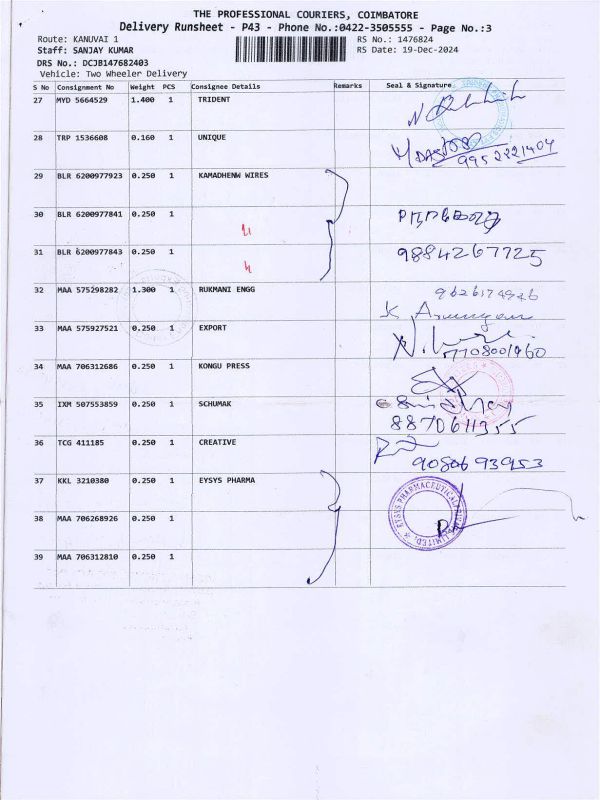 THE PROFESSIONAL COURIERS, COIMBATORE
Delivery Runsheet - P43 - Phone No.:0422-3505555 - Page No.:3
Route: KANUVAI 1 RS No.: 1476824
Staff: SANJAY KUMAR RS Date: 19-Dec-2024
DRS No.: DCJB147682403
Vehicle: Two Wheeler Delivery
S No Consignment No Weight PCS Consignee Details Remarks Seal & Signature
27 MYD 5664529 1.400 1 TRIDENT
28 TRP 1536608 0.160 1 UNIQUE
9952221404
29 BLR 6200977923 0.250 1 KAMADHENW WIRES
30 BLR 6200977841 0.250 1
31 BLR 6200977843 0.250 1 9884267725
32 MAA 575298282 1.300 1 RUKMANI ENGG
33 MAA 575927521 0.250 1 EXPORT
7708001960
34 MAA 706312686 0.250 1 KONGU PRESS
35 IXM 507553859 0.250 1 SCHUMAK
8870611355
36 TCG 411185 0.250 1 CREATIVE
9080693953
37 KKL 3210380 0.250 1 EYSYS PHARMA
EYSYS PHARMACEUTICAL PRIVATE LIMITED
38 MAA 706268926 0.250 1
39 MAA 706312810 0.250 1